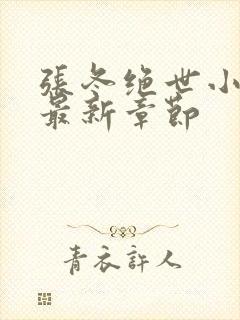 張冬绝世小
最新章節
青衣許人